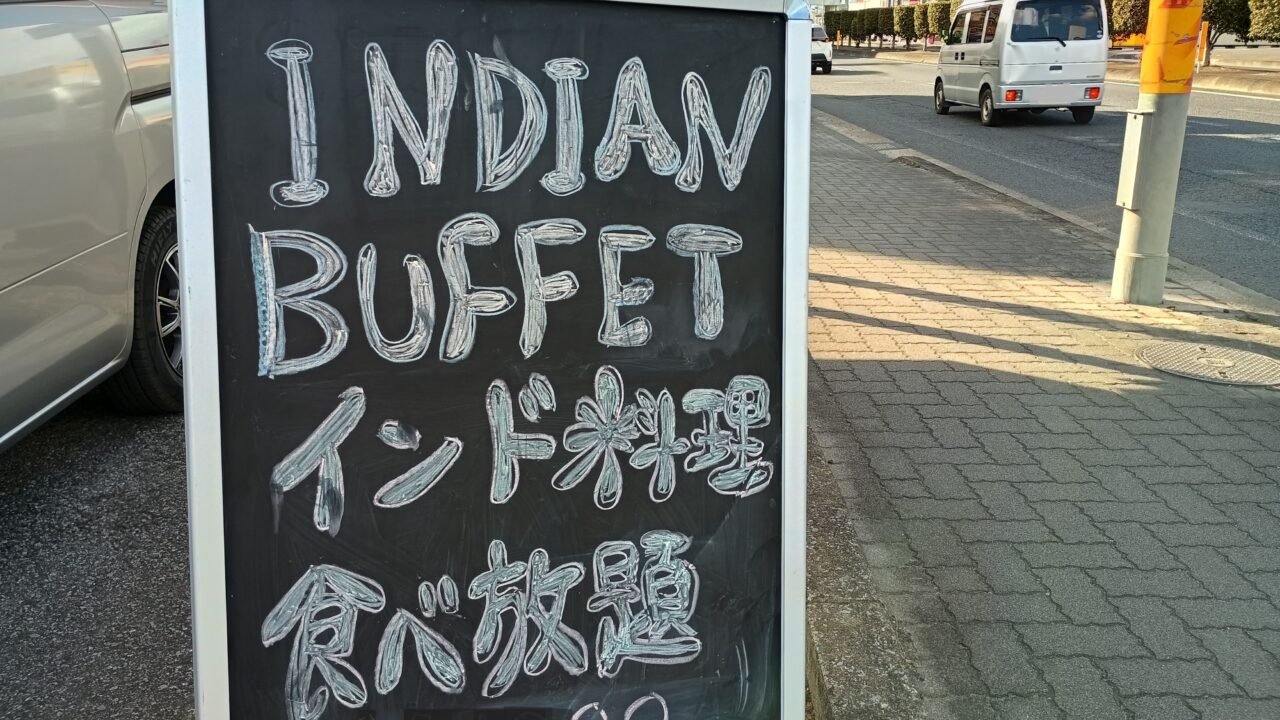 INDIAN
BUFFET
インド料理
食べ放題